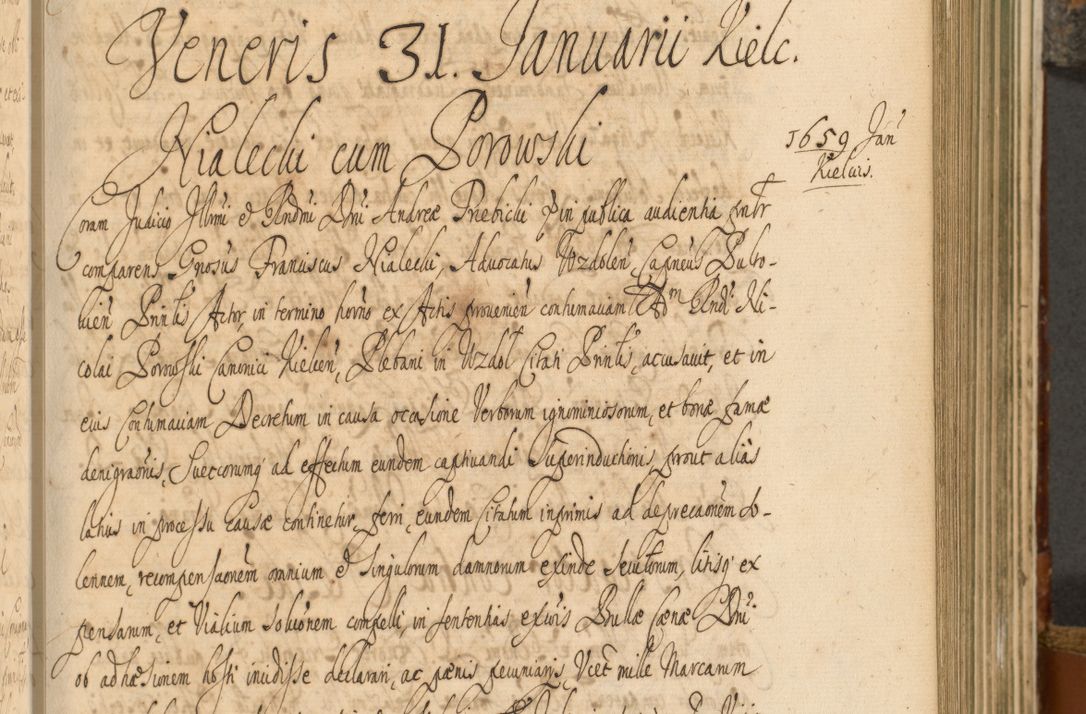 Veneris 31. Januarii Kielc.
Nialecki cum Borowski
1659 Jan
Kielcis.
Coram Judicio Illrmi et Rndmi Dni Andreæ Trebicki in publica audientia pntr
comparens Gnosus Franciscus Nialecki, Advocatus Wzdolen Capneus Ducto-
vien Prinlis Actor, in termino horno ex Actis provenien contumaciam Adm Rndi Ni-
colai Borowski Canonici Kielcen, Plebani in Wzdol Citati Prinlis, accusavit, et in
eius Contumaciam Decretum in causa occasione Verborum ignominiosorum, et bonæ famæ
denigraonis, Suecorumq ad effectum eundem captivandi Superinductionis prout alias
latius in processu causæ continetur ferri, eundem Citatum inprimis ad deprecaonem so-
lennem, recompensaonem omnium et singulorum damnorum exinde secutorum, litisq ex
pensarum, et Vialium soluonem compelli, in sententias excois Bullæ Cœnæ Dni
ob adhæsionem hosti incidisse declarari, ac pœnis pecuniarys, Vcet mille Marcarum